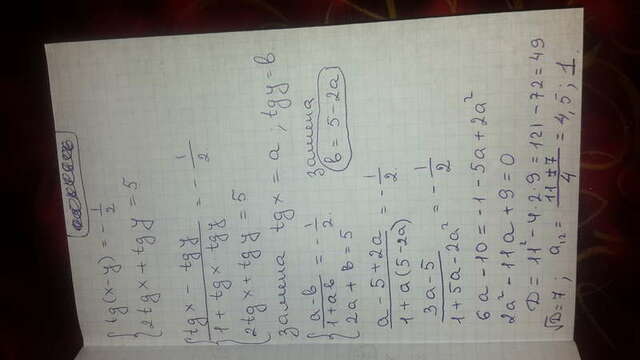 { tg(x-y) = -1/2
2tgx + tgy = 5
{ (tgx - tgy)/(1 + tgx tgy) = -1/2
2tgx + tgy = 5
замена tgx = a ; tgy = в
{ (a-в)/(1+aв) = -1/2
2a + в = 5
замена
в = 5-2a
(a-5+2a)/(1+a(5-2a)) = -1/2
(3a-5)/(1+5a-2a²) = -1/2
6a-10 = -1-5a+2a²
2a²-11a+9=0
D = 11²-4·2·9 = 121-72 = 49
√D=7 ; a₁₂ = (11±7)/4 = 4,5 ; 1.